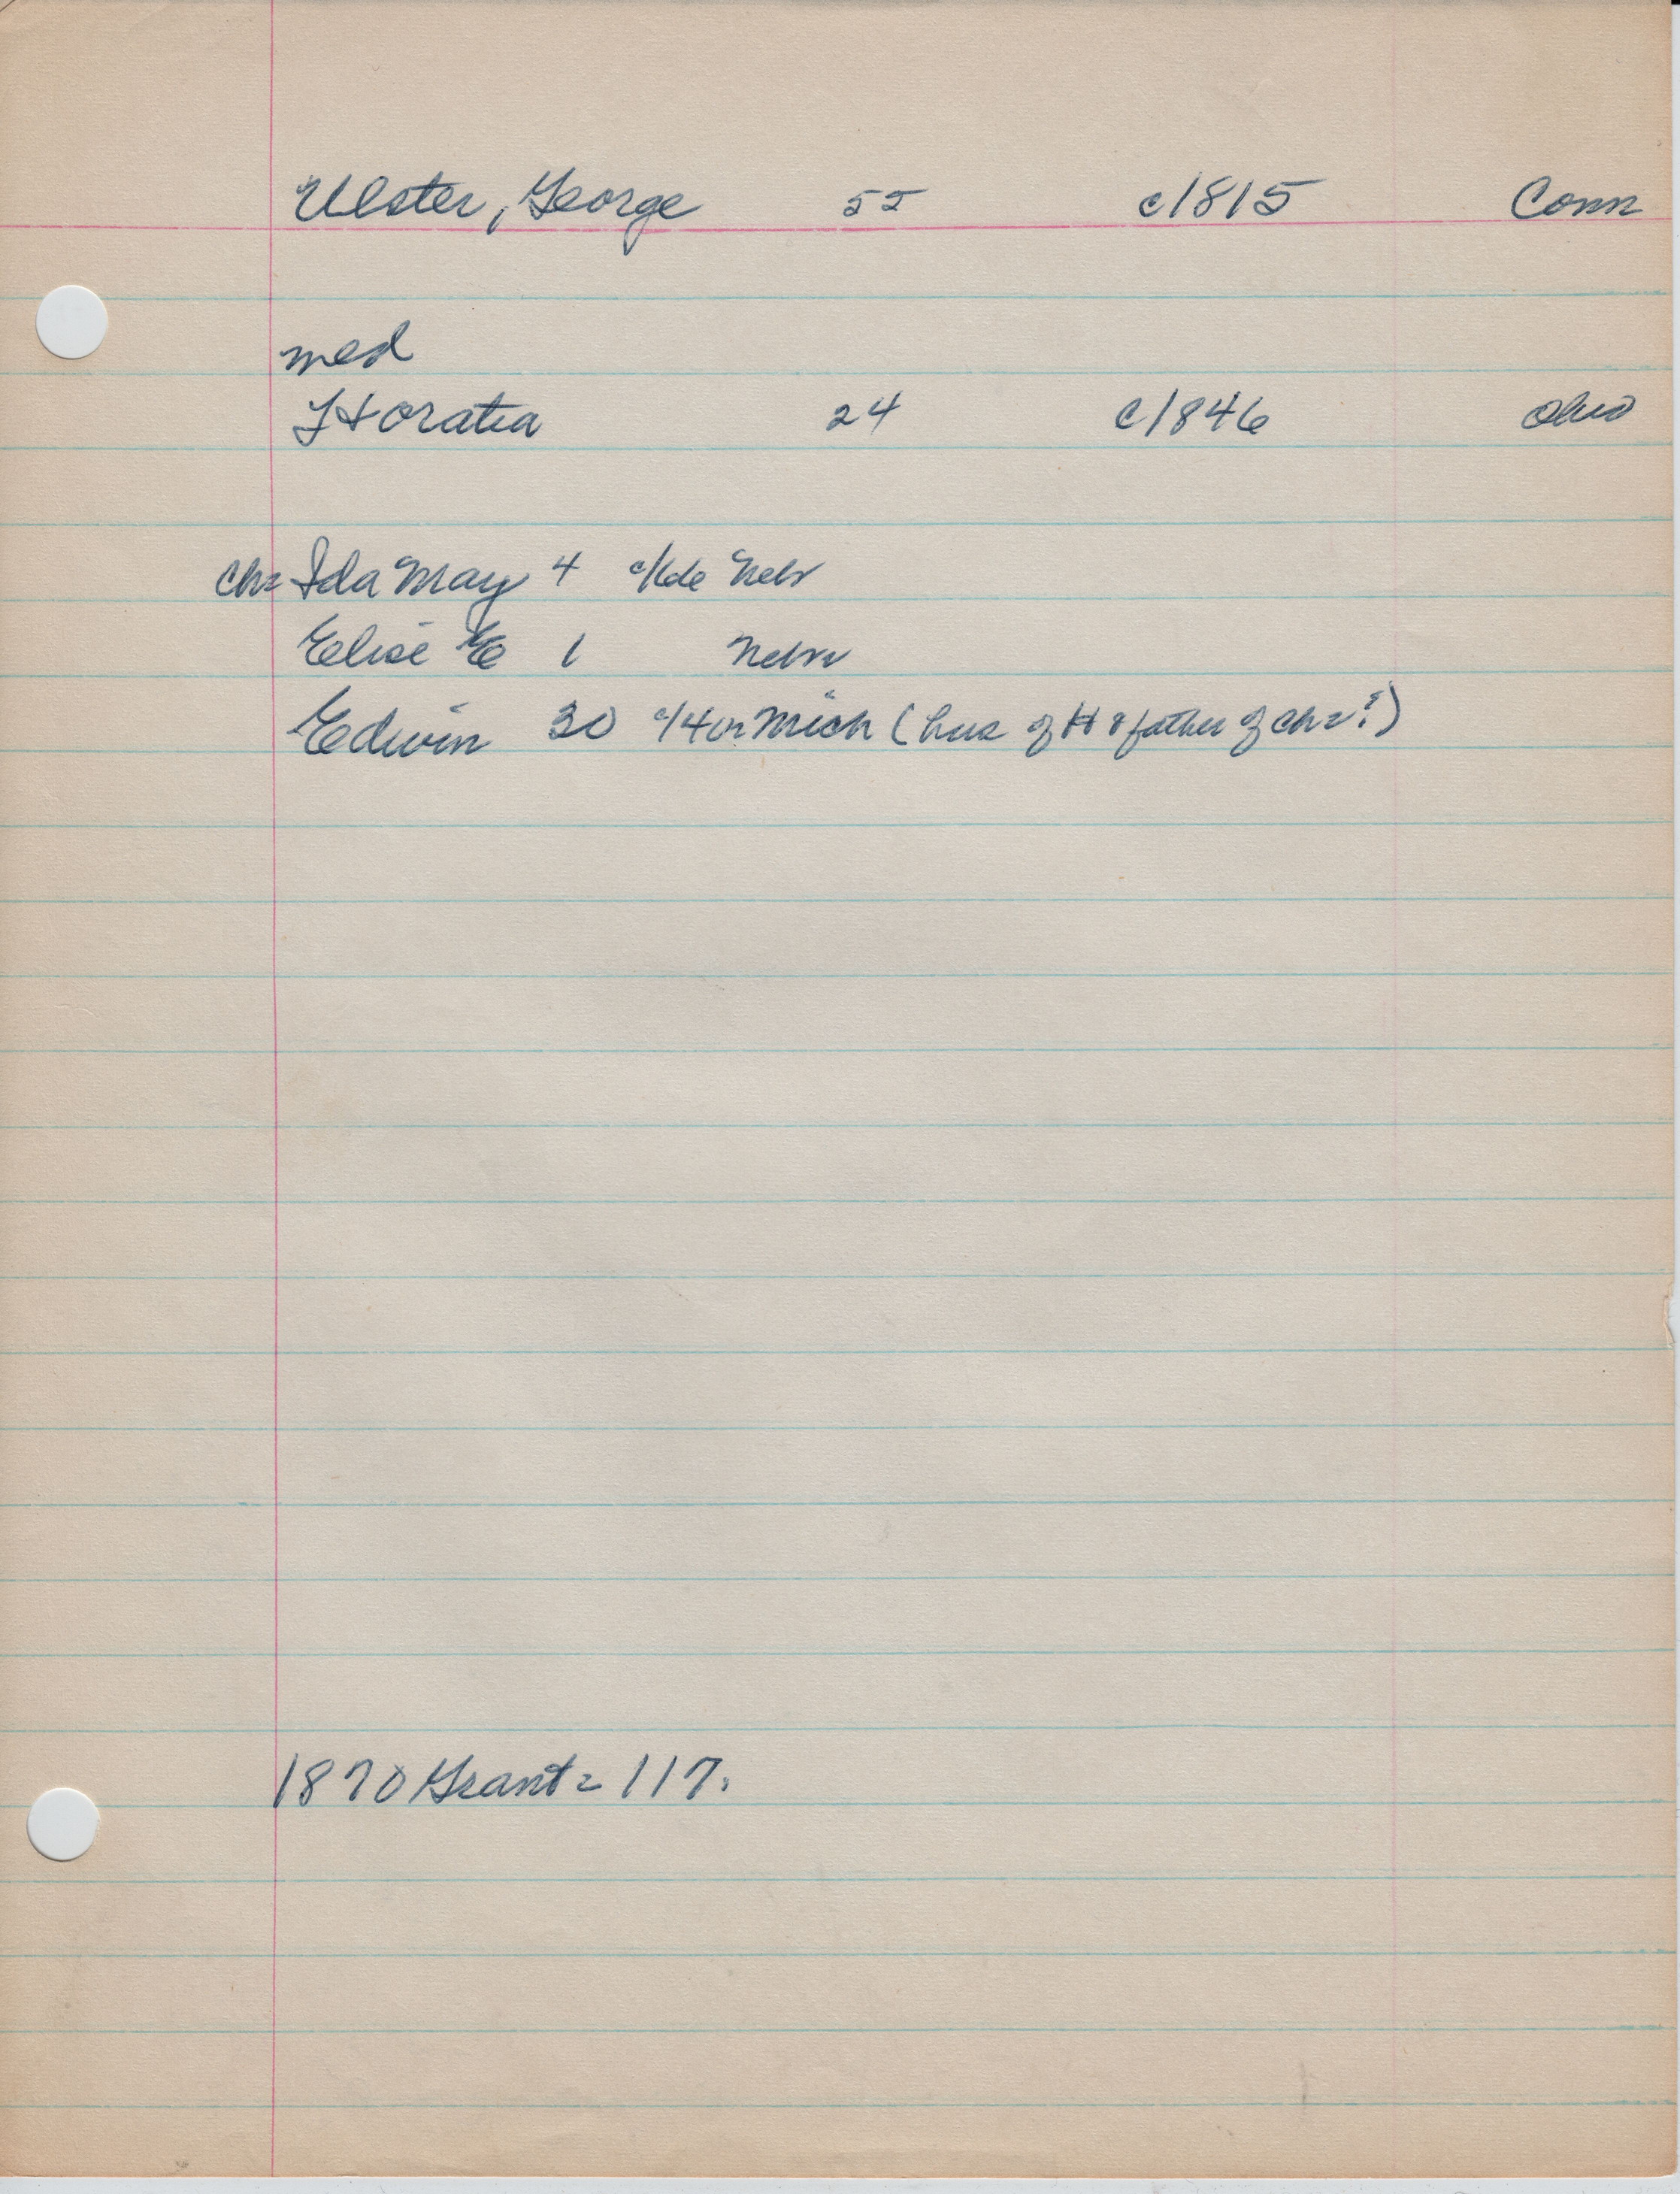 Ulster, George 55 c1815 Conn
med
Horatia 24 c1846 Ohio
chs Ida May 4 Nebr
Elise E 1 Nebr
Edwin 30 Mich (hus of H & father of chs?)
1870 Grant = 117.